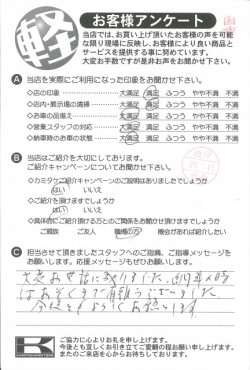 軽
お客様アンケート
当店では、お買い上げ頂いたお客様の声を可能
な限り現場に反映し、お客様により良い商品と
サービスを提供する事に努めています。
大変お手数ですが是非お声をお聞かせ下さい。
A 当店を実際にご利用になった印象をお聞かせ下さい。
◇店の印象 大満足 満足 ふつう やや不満 不満
◇店内・展示場の清掃 大満足 満足 ふつう やや不満 不満
◇お車の品揃え 大満足 満足 ふつう やや不満 不満
◇営業スタッフの対応 大満足 満足 ふつう やや不満 不満
◇納車時のお車の状態 大満足 満足 ふつう やや不満 不満
B 当店はご紹介を大切にしております。
ご紹介キャンペーンについてお聞かせ下さい。
◇カミタケご紹介キャンペーンのご説明はありましたでしょうか
はい いいえ
◇ご紹介を頂けますでしょうか
はい いいえ
◇具体的にご紹介頂ける方とのご関係をお聞かせ頂けますでしょうか
ご親族 ご友人 職場の方 機会があれば紹介したい
C 担当させて頂きましたスタッフへのご指摘、ご指導メッセージを
お願いします。応援メッセージもぜひお願いします。
大変お世話になりました。納車の時
はおそくまで有難うございました。
今後ともよろしくお願いします
K
ご協力に心よりお礼を申し上げます。
今後とも宜しくお引き立てご愛顧の程お願い申し上げます。
またのご来店を心からお待ちしております。